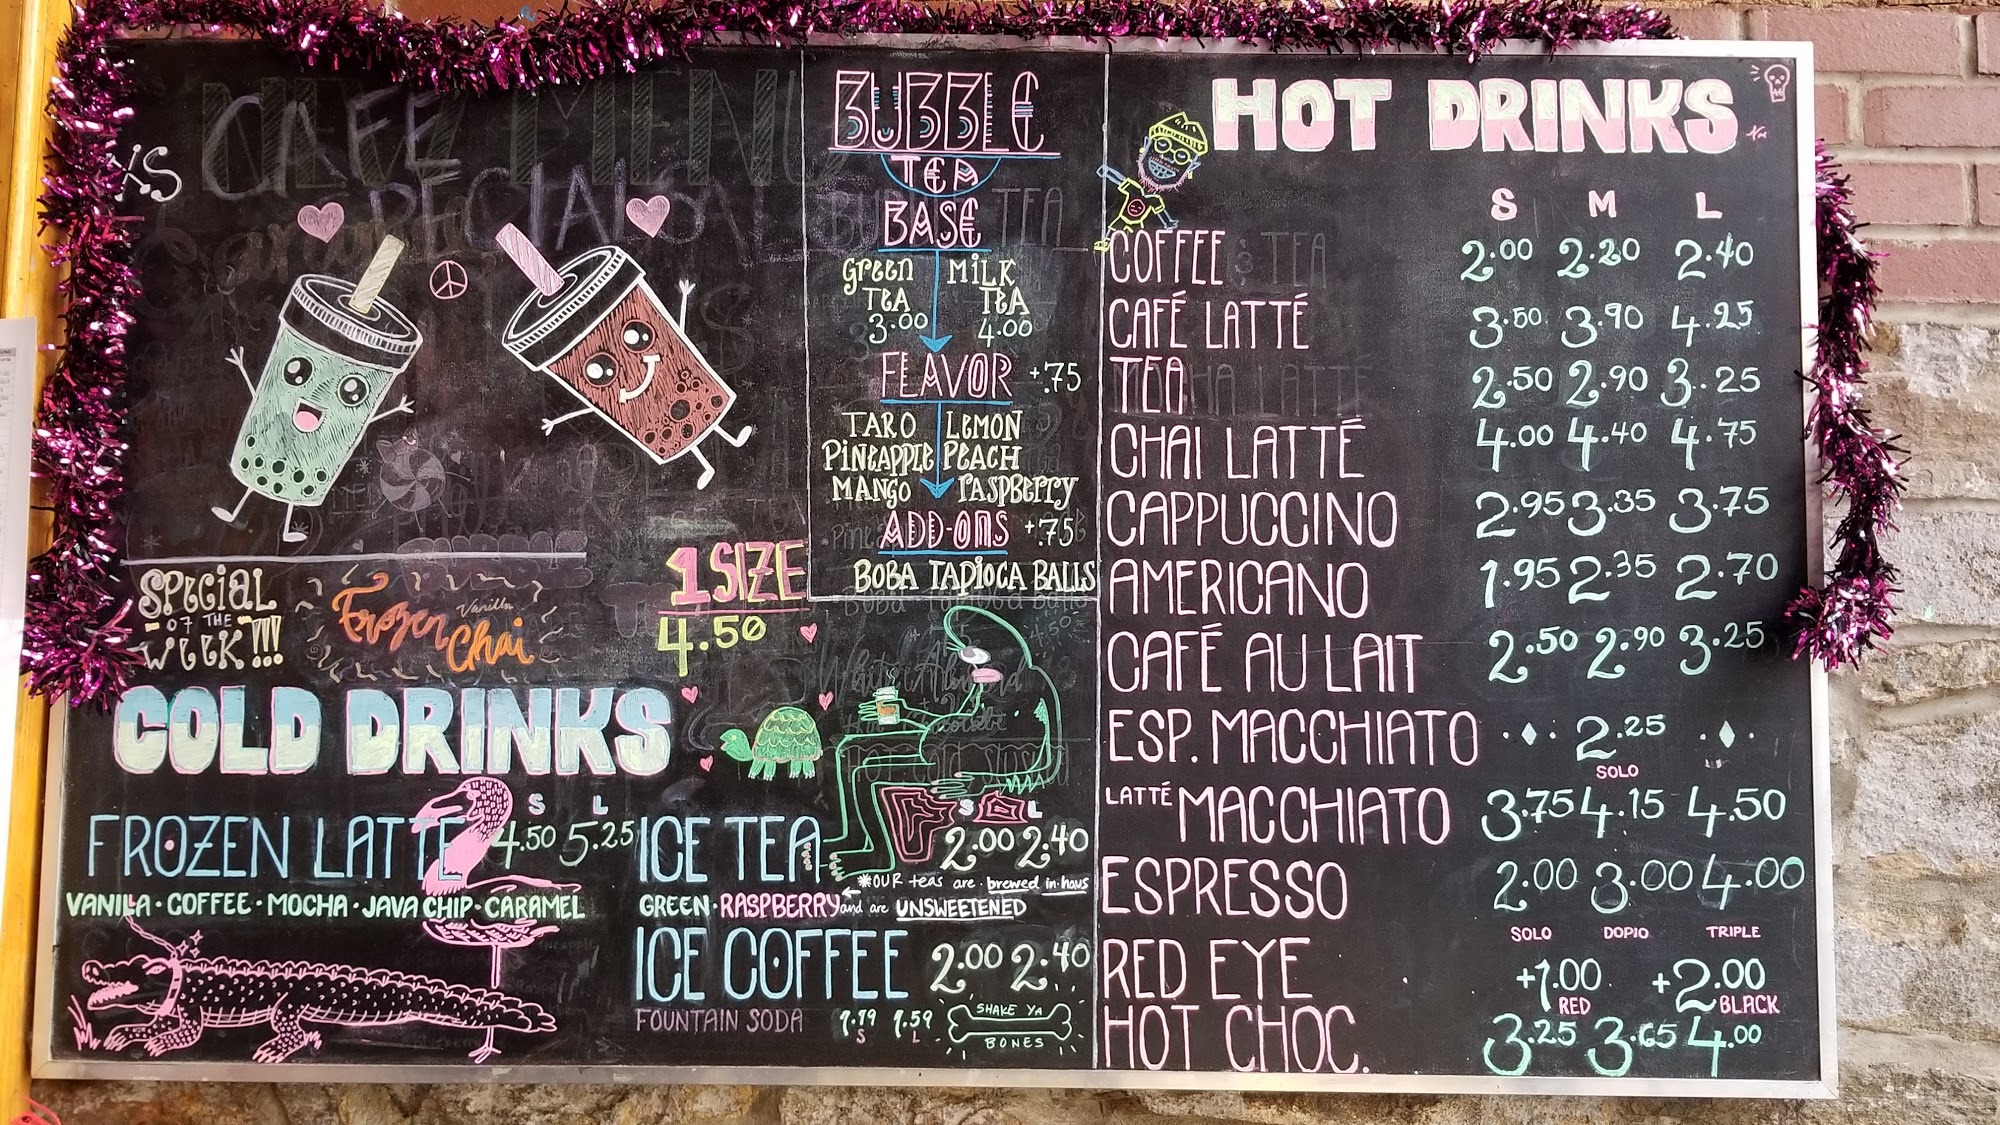 CAFE
SPECIAL
OF THE
WEEK!!!
Frozen
Vanilla
Chai
1 SIZE
4.50
COLD DRINKS
S L
FROZEN LATTE 4.50 5.25
VANILLA · COFFEE · MOCHA · JAVA CHIP · CARAMEL
S L
ICE TEA 2.00 2.40
*OUR teas are brewed in·haus
GREEN · RASPBERRY and are UNSWEETENED
ICE COFFEE 2.00 2.40
FOUNTAIN SODA 1.19 1.59
S L
SHAKE YA
BONES
BUBBLE
TEA
BASE
GREEN TEA 3.00
MILK TEA 4.00
FLAVOR +.75
TARO LEMON
PINEAPPLE PEACH
MANGO RASPBERRY
ADD-ONS +.75
BOBA TAPIOCA BALLS
HOT DRINKS
S M L
COFFEE 2.00 2.20 2.40
CAFÉ LATTÉ 3.50 3.90 4.25
TEA 2.50 2.90 3.25
CHAI LATTÉ 4.00 4.40 4.75
CAPPUCCINO 2.95 3.35 3.75
AMERICANO 1.95 2.35 2.70
CAFÉ AU LAIT 2.50 2.90 3.25
ESP. MACCHIATO 2.25
SOLO
LATTÉ MACCHIATO 3.75 4.15 4.50
ESPRESSO 2.00 3.00 4.00
SOLO DOPIO TRIPLE
RED EYE +1.00 +2.00
RED BLACK
HOT CHOC. 3.25 3.65 4.00